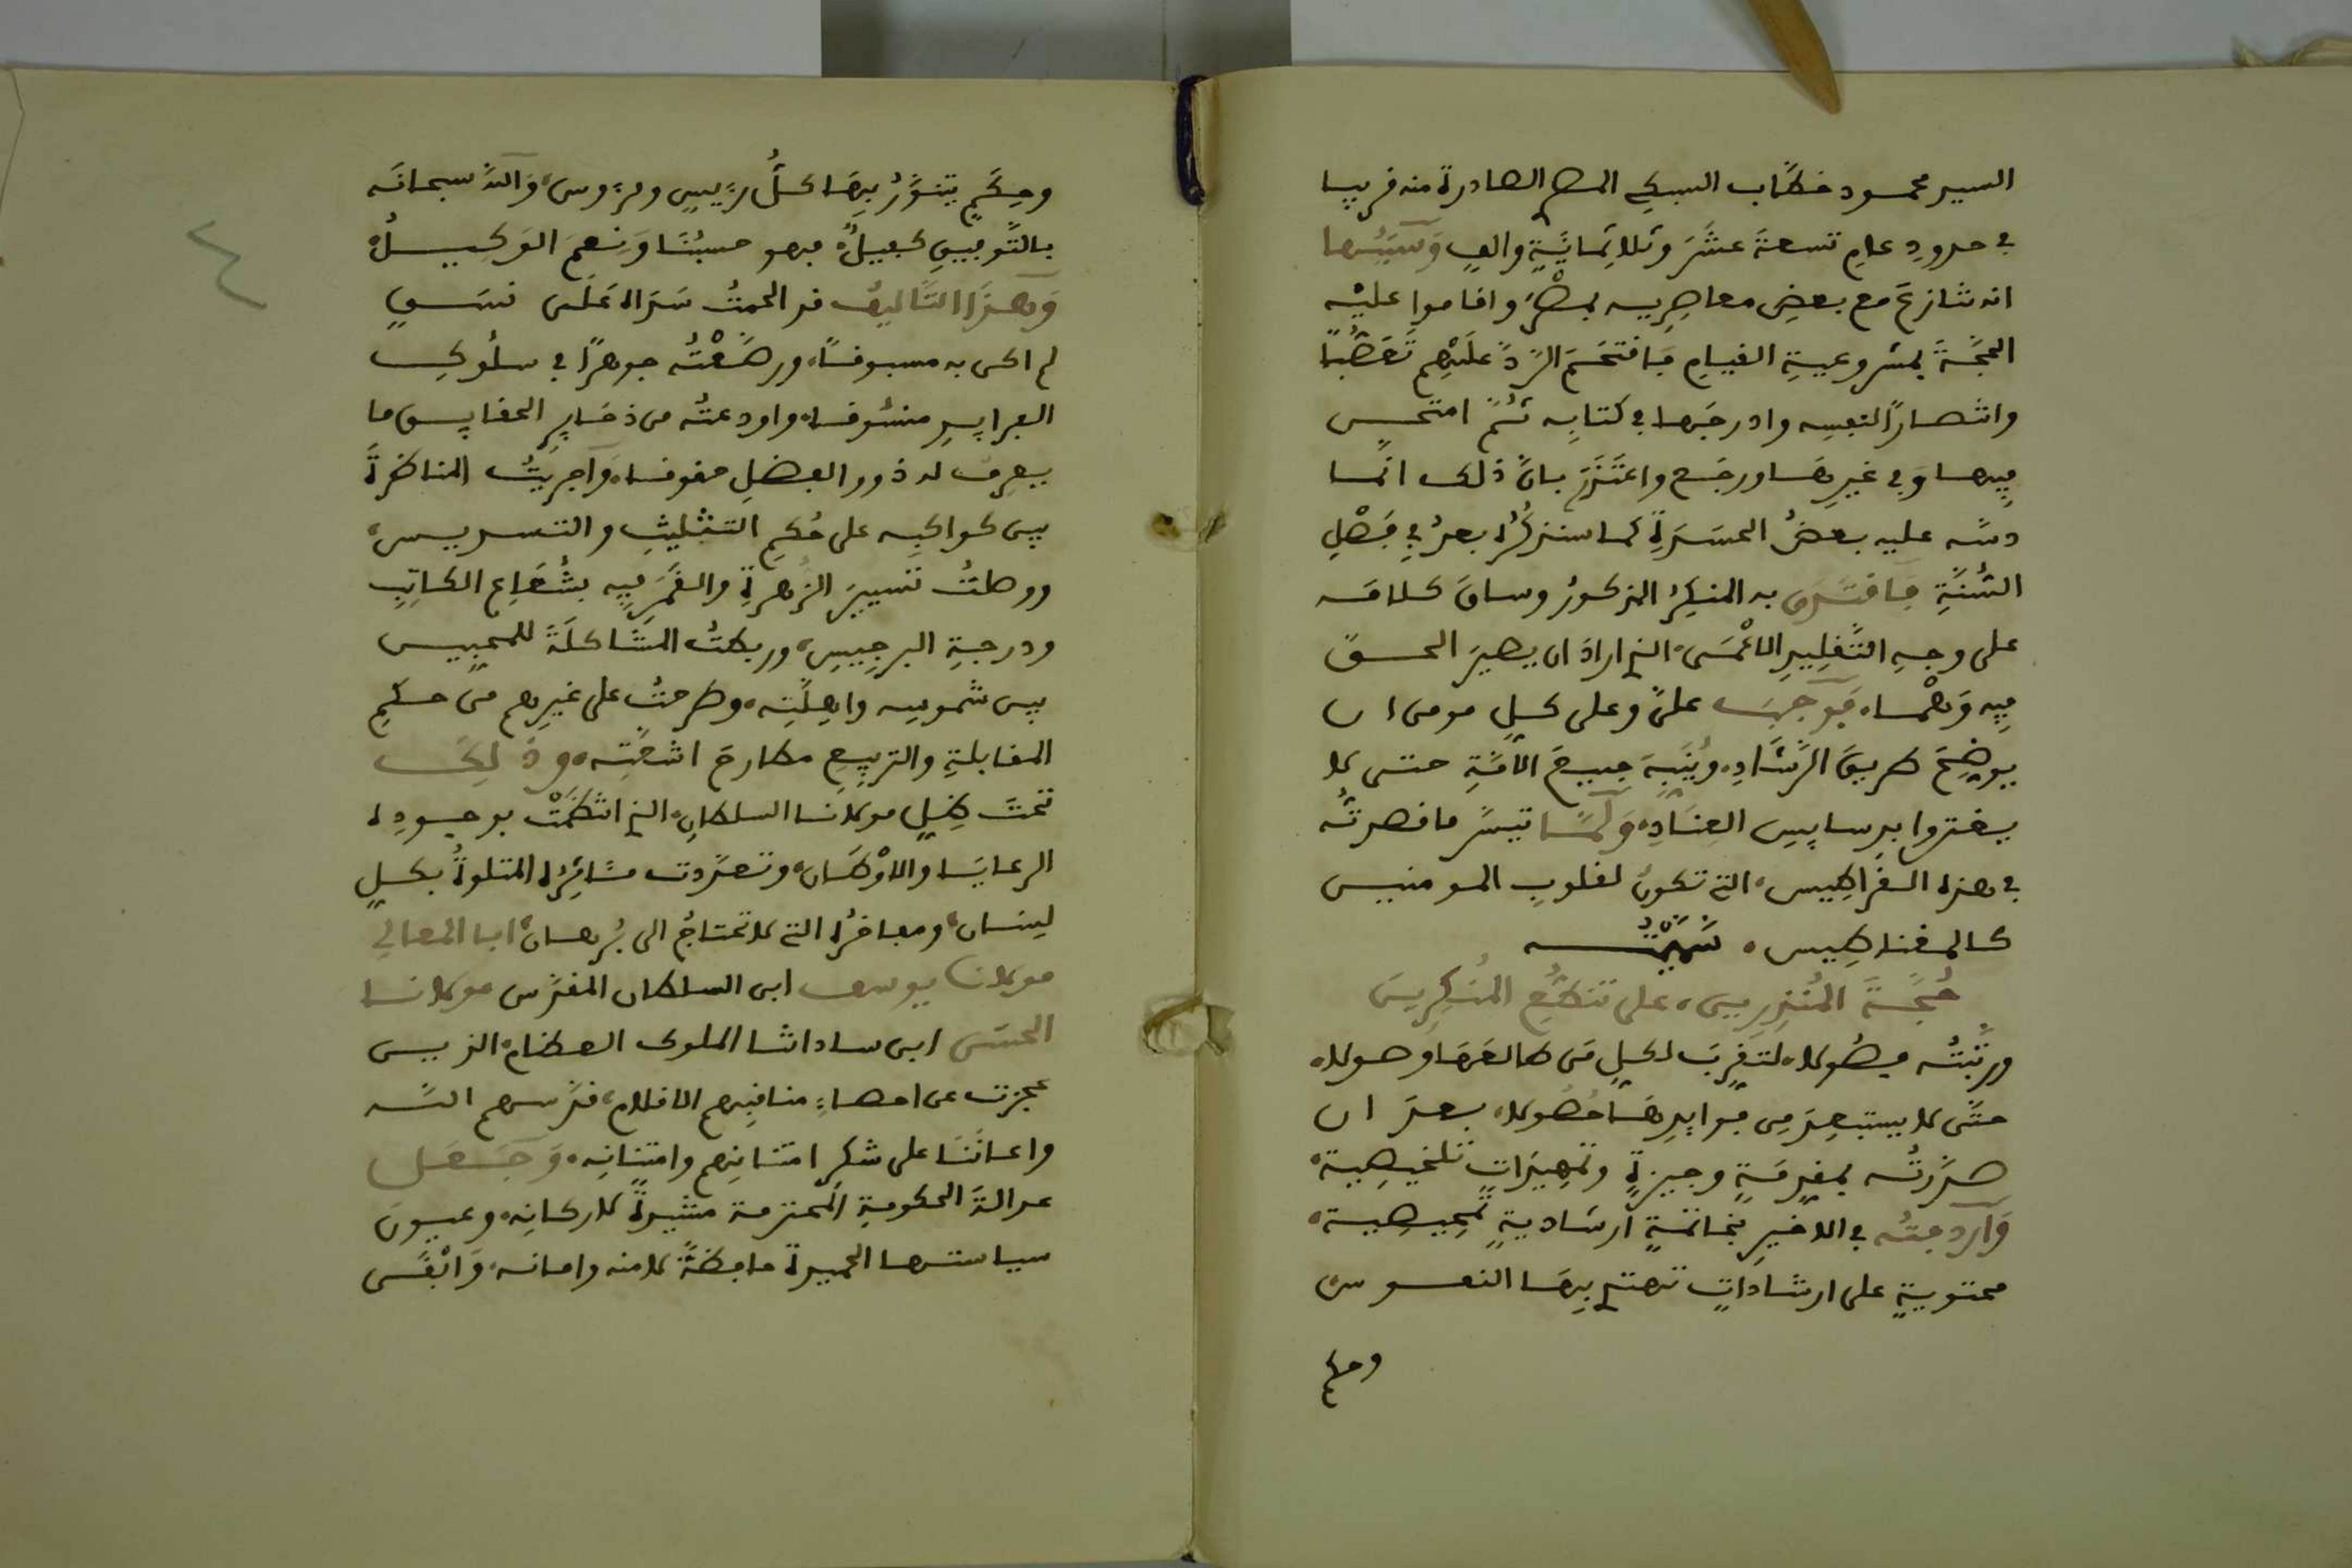 السيد محمود خطاب السبكي المصر الصادرة منه قريبا
في حدودِ عامِ تسعةَ عشَرَ وثلاثمائةٍ والفٍ وَسَبَبُها
انه تنازعَ مع بعضِ معاصِرِيه بمصْرَ واقاموا عليْه
الحجّةَ بمشروعيةِ القيامِ فاقتحَمَ الرّدَّ علَيْهِم تَعَصُّبًا
وانتصارًا لنفسِه وادرجَها في كتابِه ثُمَّ امتُحِن
فيها وَفي غيرِهَا ورجَع واعتَذَرَ بانَّ ذلك انّما
دسّه عليه بعضُ الحسَدَةِ كما سنذكُرُه بعدُ في فَصْلِ
السُّنَّةِ فَاقتَدَى به المنكِرُ المذكورُ وساقَ كلامَه
على وجهِ التَّقلِيدِ الاعْمَى، الذي ارادَ ان يصيرَ الحقّ
فِيه وَهْما، فوَجَبَ عليَّ وعلى كلِ مومن ان
يوضِحَ طريقَ الرَّشَادِ، ويُنَبِهَ جميعَ الامّةِ حتى لا
يغتروا بدسايسِ العِنَادِ، وَلَمَّا تيسَّر ما قصدتُه
في هذه القَرَاطِيس، التي تكونُ لقلوبِ المومنين
كالمغناطِيس، سَمَّيْتُه
حُجَّةَ المُنذِرِينَ، على تنطُّعِ المُنكِرِينَ
ورتَّبتُه فصُولا، لتقرِبَ لكلِ مَن طالعَهَا وصولا،
حتَّى لا يستبعِدَ مِن فوايدِهَا حُصُولا، بعدَ ان
صدَّرتُه بمقدِمَةٍ وجيزةٍ وتمهيدَاتٍ تلخيصِية،
وَاردفتُه في الاخيرِ بخاتمَةٍ ارشاديةٍ تمحِيصِية،
محتويةٍ على ارشاداتٍ تهتم بِهَا النفوس،
وحكم
وحِكَمٍ يتنوَّرُ بِهَا كلُّ رَييسٍ ومرءوس، وَاللهُ سبحانَه
بالتَّوفيقِ كفيلٌ، فهو حسبُنَا وَنِعمَ الوَكيلُ،
وَهذَا التَّاليفُ قد الحمتُ سَدَاه عَلَى نسَقٍ
لم اكن به مسبوقًا، ورصَّعْتُه جوهرًا في سلُوكِ
الفرايدِ منسُوقا، واودعتُه من ذخَايرِ الحقايق ما
يعرِف له ذوو الفضلِ حقوقا، وَاجريتُ المناظرةَ
بين كواكبِه على حُكمِ التثليثِ والتسديس،
ووصلتُ تسييرَ الزُهرةِ والقمَرِ فيه بشُعَاعِ الكاتِبِ
ودرجةِ البرجِيسِ، وربطتُ المشاكلَةَ للمحبين
بين شموسِه واهِلَّتِه، وطرحتُ على غيرِهم من حكمِ
المقابلةِ والتربيعِ مطارحَ اشعّتِه، وذَلِكَ
تحتَ ظِلِ مولانا السلطانِ، الذي انتظمَتْ بوجودِه
الرعايَا والاوْطَان، وتعدَّدت مَئاثِرُه المتلوةُ بكلِ
لِسَان، ومفاخرُه التي لا تحتاجُ الى بُرهان، ابا المعالي
مولانا يوسف ابن السلطان المقدَّس مولانا
الحسَن ابن ساداتنا الملوك العظام، الذين
عجزت عن احصاءِ مناقبِهم الاقلام، قدَّسهم اللّه
واعانَنَا على شكرِ امتنانِهم وامتنانِه، وَجَعَل
عدالةَ الحكومةِ المحترمة مشيِدةً لاركانِه، وعيونَ
سياستها الحميدة حافظةً لامنه وامانه، وَابْقَى
٤